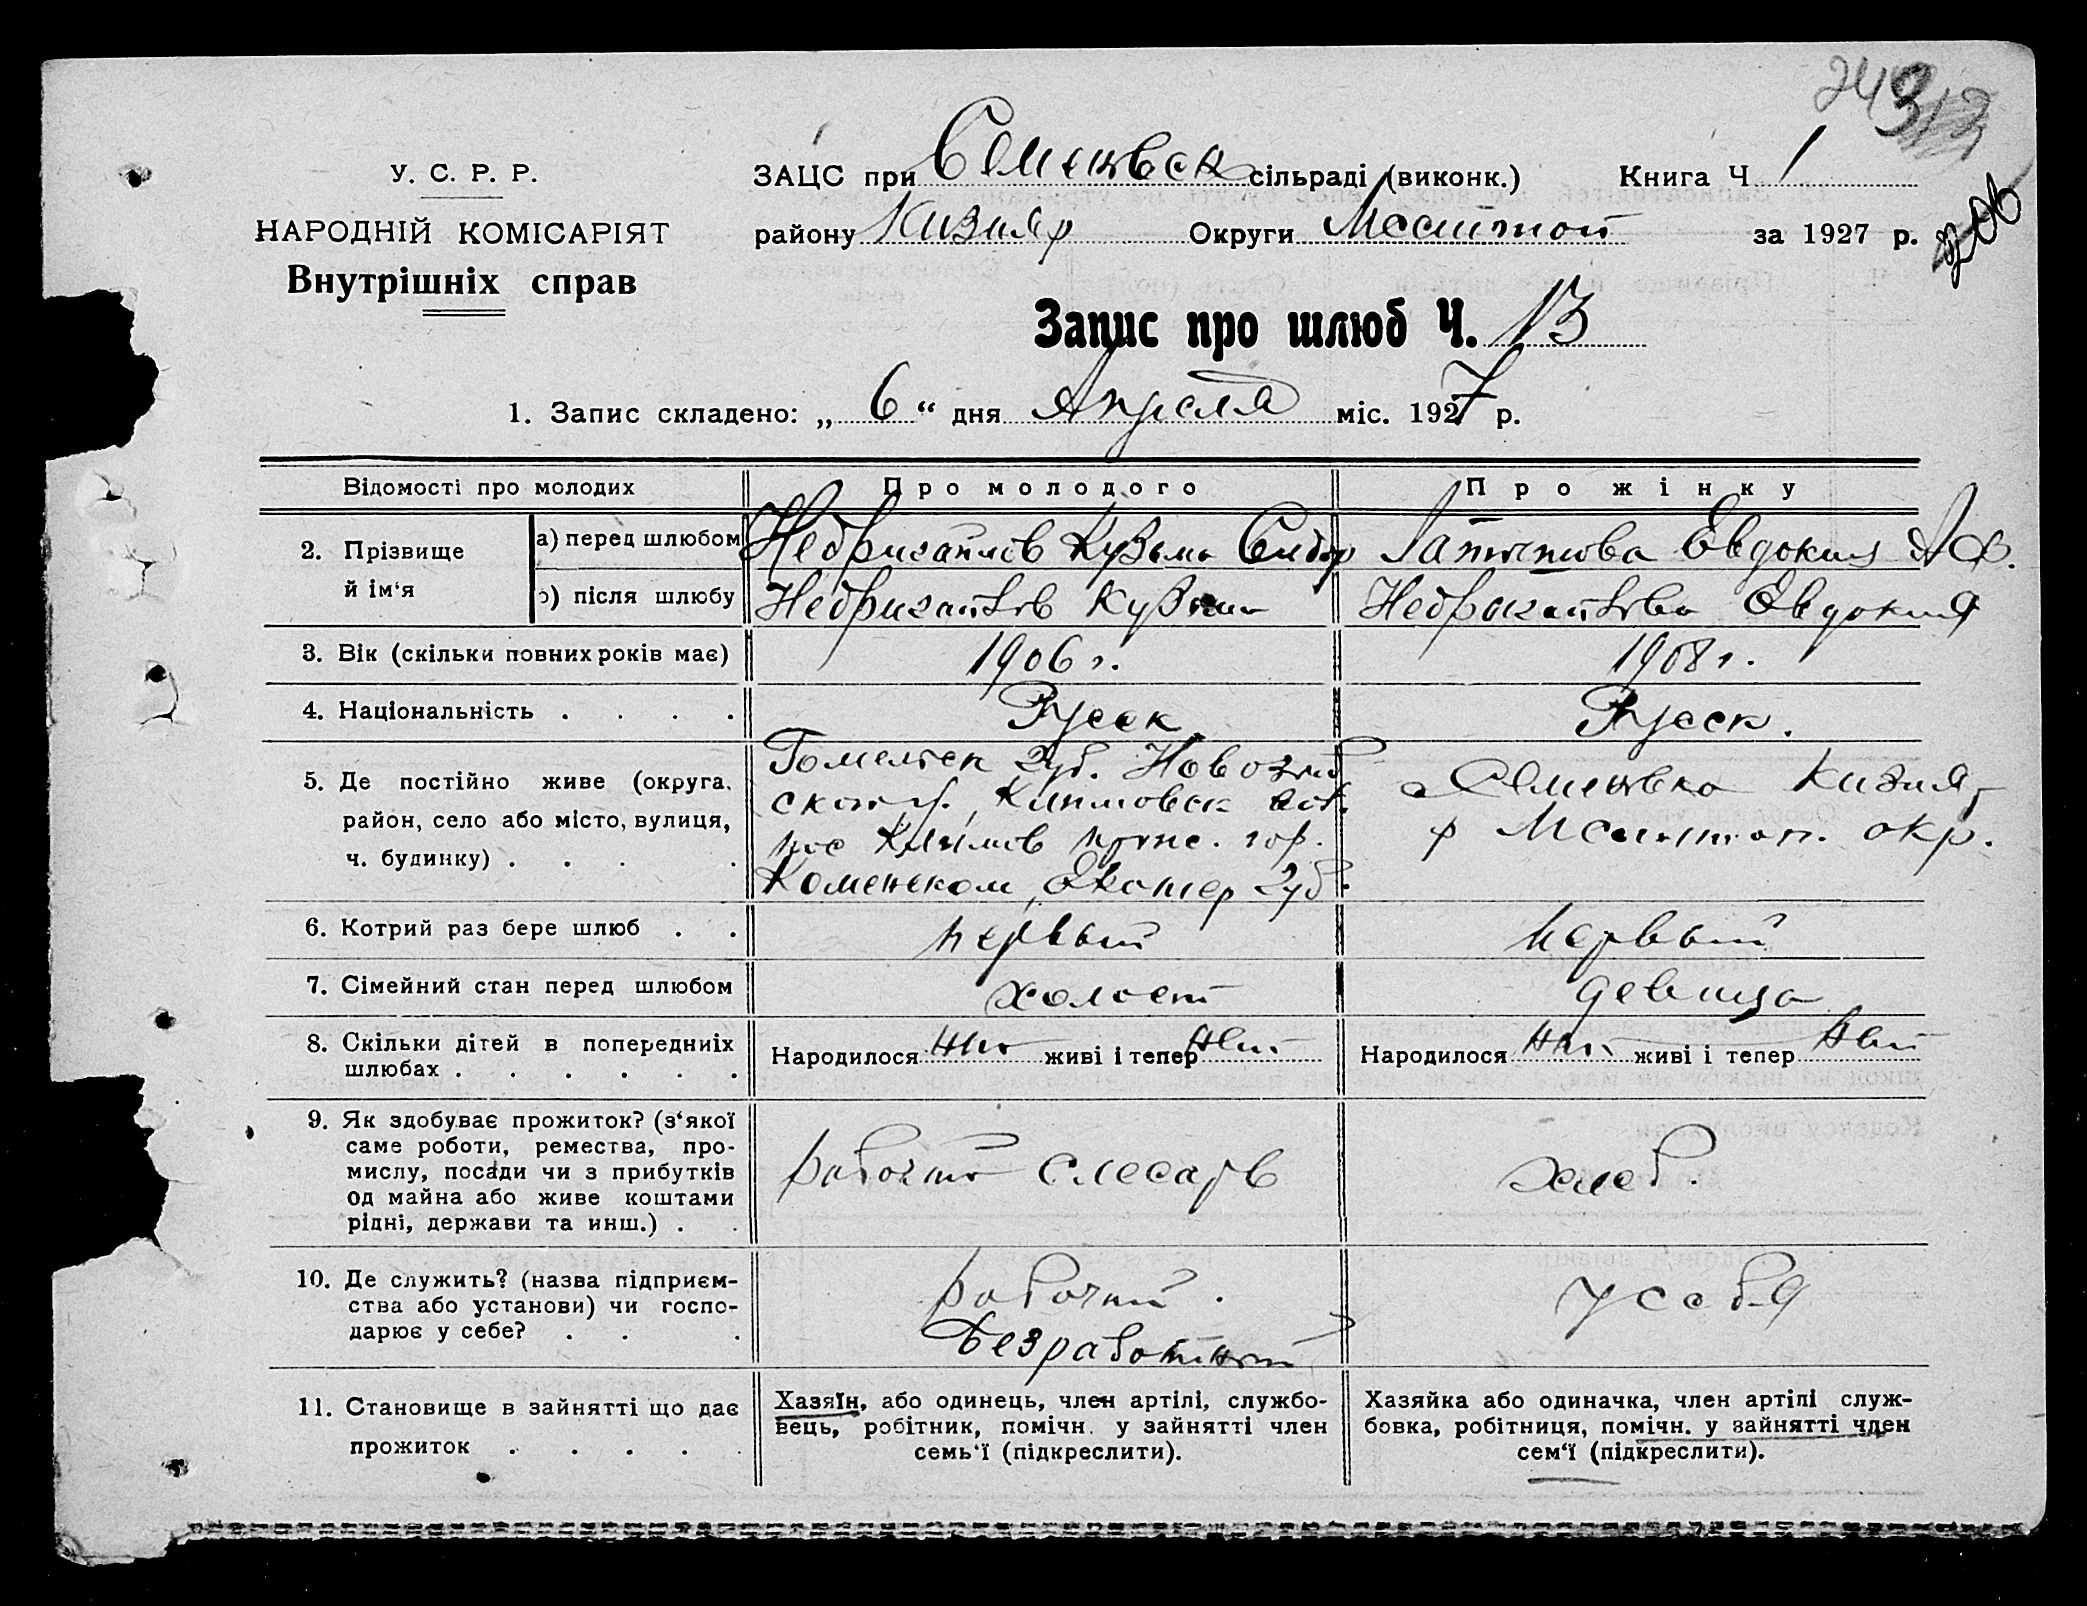 243
206
У. С. Р. Р.
НАРОДНІЙ КОМІСАРІЯТ
Внутрішніх справ
ЗАЦС при Семеновск сільраді (виконк.) Книга Ч 1
району Кизияр Округи за 1927 р.
Запис про шлюб Ч. 13
1. Запис складено: „ 6 “ дня Апреля міс. 1927 р.
Відомості про молодих Про молодого Про жінку
2. Прізвище й ім‘я
а) перед шлюбом Кузьма Сидор Евдокия
б) після шлюбу Кузьма Евдокия
3. Вік (скільки повних років має) 1906 г. 1908 г.
4. Національність . . . . Русск Русск.
5. Де постійно живе (округа,
район, село або місто, вулиця,
ч. будинку) . . . .
Гомельск губ. Новозыб
Климовск
пос Климов гор.
Каменском, Екатер губ.
Семеновка Кизия-
р окр.
6. Котрий раз бере шлюб . . первый первый
7. Сімейний стан перед шлюбом холост девица
8. Скільки дітей в попередніх
шлюбах . . . . . .
Народилося нет живі і тепер нет
Народилося нет живі і тепер нет
9. Як здобуває прожиток? (з‘якої
саме роботи, ремества, про-
мислу, посади чи з прибутків
од майна або живе коштами
рідні, держави та инш.) . .
рабочий слесарь
хлеб.
10. Де служить? (назва підприєм-
ства або установи) чи госпо-
дарює у себе? . . .
рабочий.
безработный
у себя
11. Становище в зайнятті що дає
прожиток . . . . .
Хазяїн, або одинець, член артілі, службо-
вець, робітник, помічн. у зайнятті член
семь‘ї (підкреслити).
Хазяйка або одиначка, член артілі служ-
бовка, робітниця, помічн. у зайнятті член
сем‘ї (підкреслити).